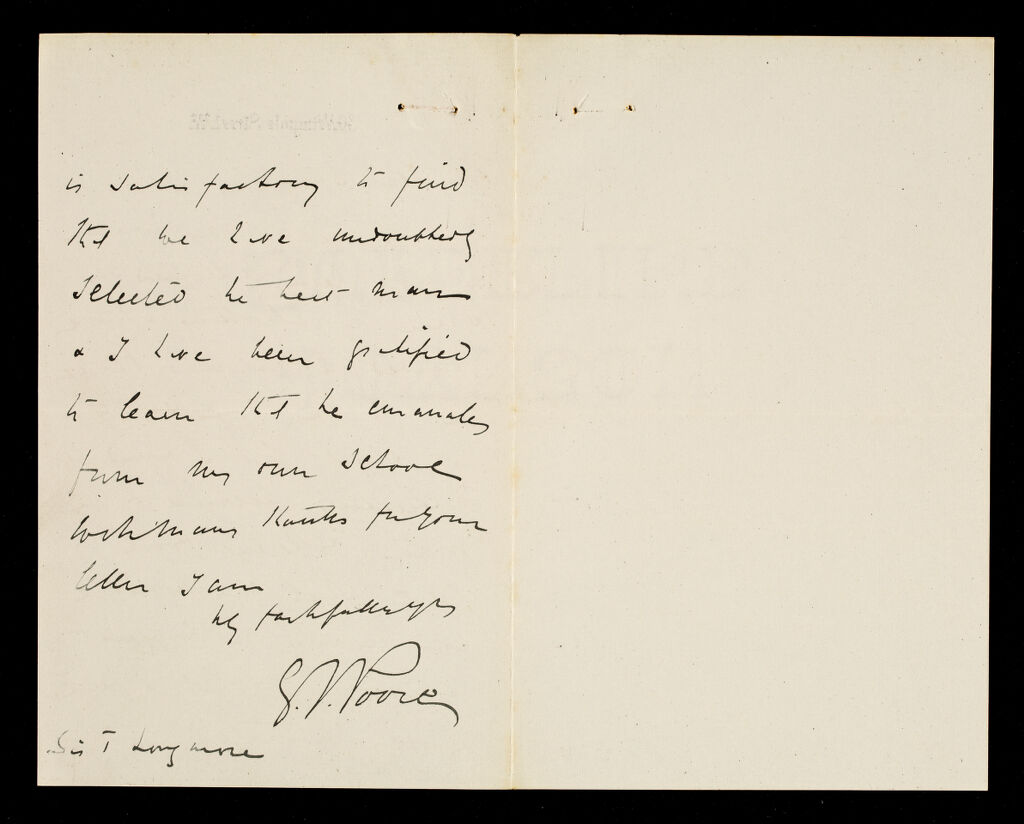 is satisfactory to find
that we have undoubtedly
selected the best man
& I have been gratified
to learn that he emanates
from my own school
With many thanks for your
letter I am
Vy faithfully yrs
G. V. Poore
Sir T Longmore